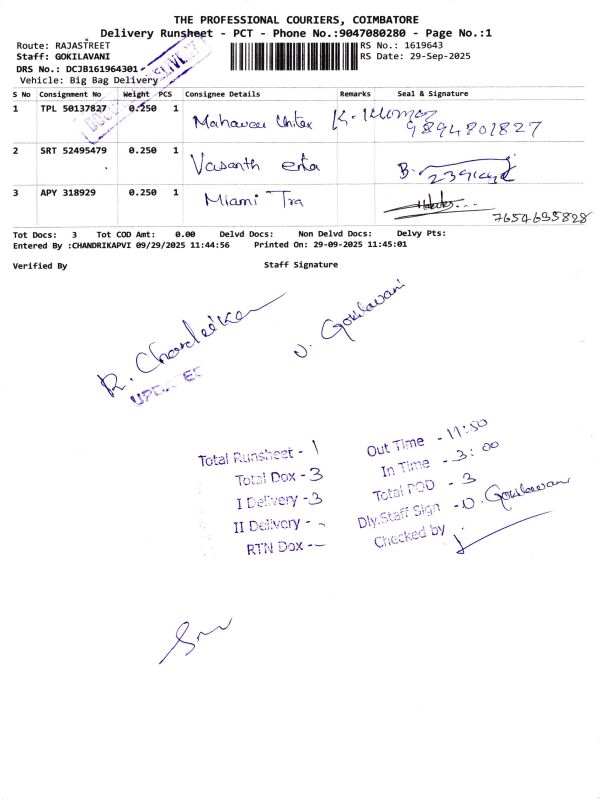 THE PROFESSIONAL COURIERS, COIMBATORE
Delivery Runsheet - PCT - Phone No.:9047080280 - Page No.:1
Route: RAJASTREET
RS No.: 1619643
Staff: GOKILAVANI
RS Date: 29-Sep-2025
DRS No.: DCJB161964301
Vehicle: Big Bag Delivery
S No Consignment No Weight PCS Consignee Details Remarks Seal & Signature
1 TPL 50137827 0.250 1 Mahaveer Unitex 9894801827
2 SRT 52495479 0.250 1 Vasanth
3 APY 318929 0.250 1 Miami Tra 7654695828
Tot Docs: 3 Tot COD Amt: 0.00 Delvd Docs: Non Delvd Docs: Delvy Pts:
Entered By :CHANDRIKAPVI 09/29/2025 11:44:56 Printed On: 29-09-2025 11:45:01
Verified By Staff Signature
R. Chandrika
V. Gokilavani
UPDATED
Total Runsheet - 1
Total Dox - 3
I Delivery - 3
II Delivery - -
RTN Dox - -
Out Time - 11:50
In Time - 3:00
Total POD - 3
Dly.Staff Sign - V. Gokilavani
Checked by